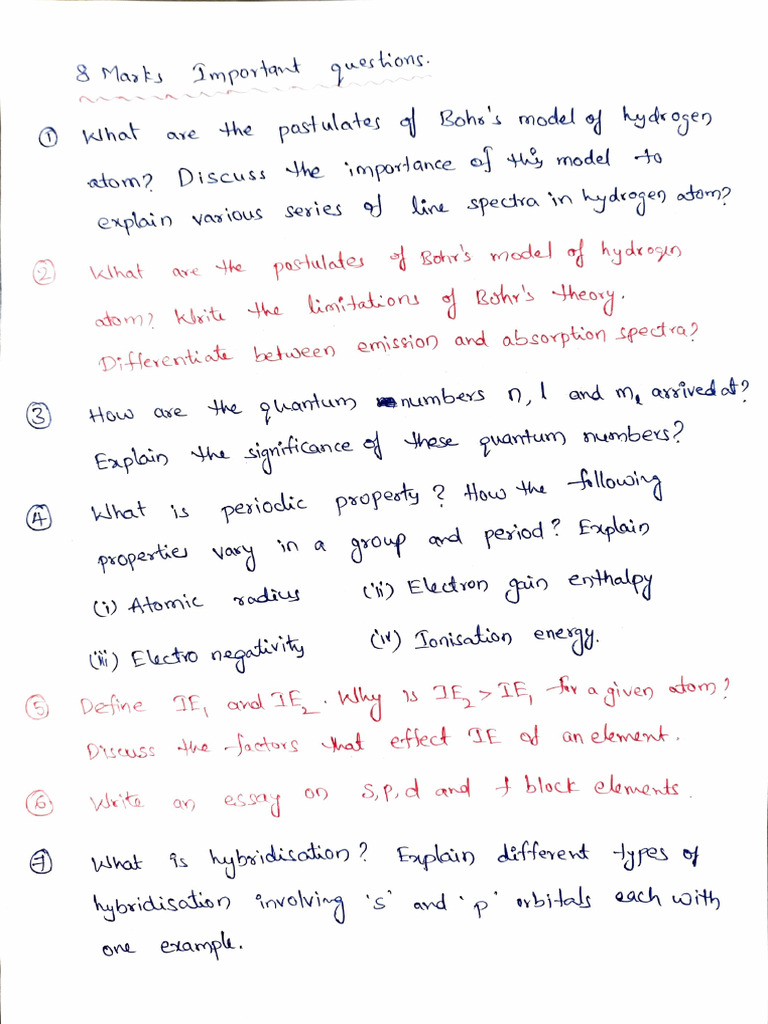 8 Marks Important questions.
① What are the postulates of Bohr's model of hydrogen
atom? Discuss the importance of this model to
explain various series of line spectra in hydrogen atom?
② What are the postulates of Bohr's model of hydrogen
atom? Write the limitations of Bohr's theory.
Differentiate between emission and absorption spectra?
③ How are the quantum numbers n, l and mₗ arrived at?
Explain the significance of these quantum numbers?
④ What is periodic property? How the following
properties vary in a group and period? Explain
(i) Atomic radius (ii) Electron gain enthalpy
(iii) Electro negativity (iv) Ionisation energy.
⑤ Define IE₁ and IE₂. Why is IE₂ > IE₁ for a given atom?
Discuss the factors that effect IE of an element.
⑥ Write an essay on s, p, d and f block elements.
⑦ What is hybridisation? Explain different types of
hybridisation involving 's' and 'p' orbitals each with
one example.